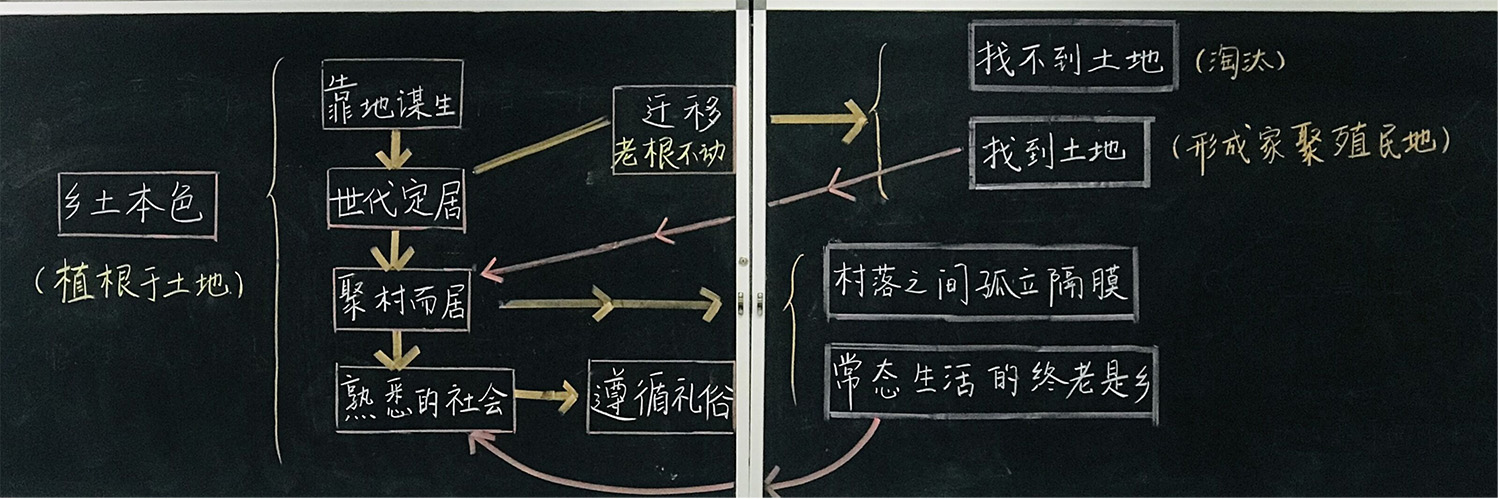 乡土本色
(植根于土地)
靠地谋生
世代定居
聚村而居
熟悉的社会
迁移
老根不动
遵循礼俗
找不到土地
(淘汰)
找到土地
(形成家聚殖民地)
村落之间孤立隔膜
常态生活的终老是乡